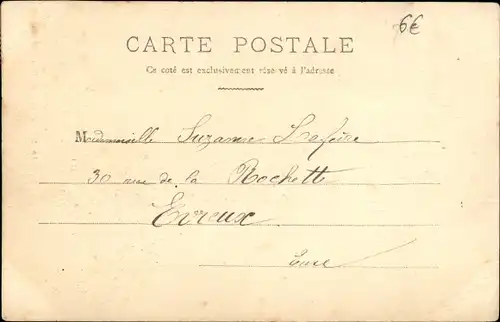 6€
CARTE POSTALE
Ce coté est exclusivement réservé à l'adresse
Mademoiselle Suzanne
30 rue de la Rochette
Evreux
Eure